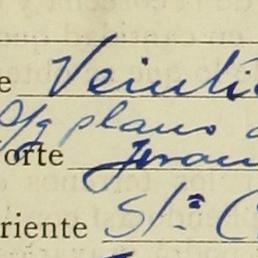 e Veinti
s/g plano
orte Jeron
riente Stª C